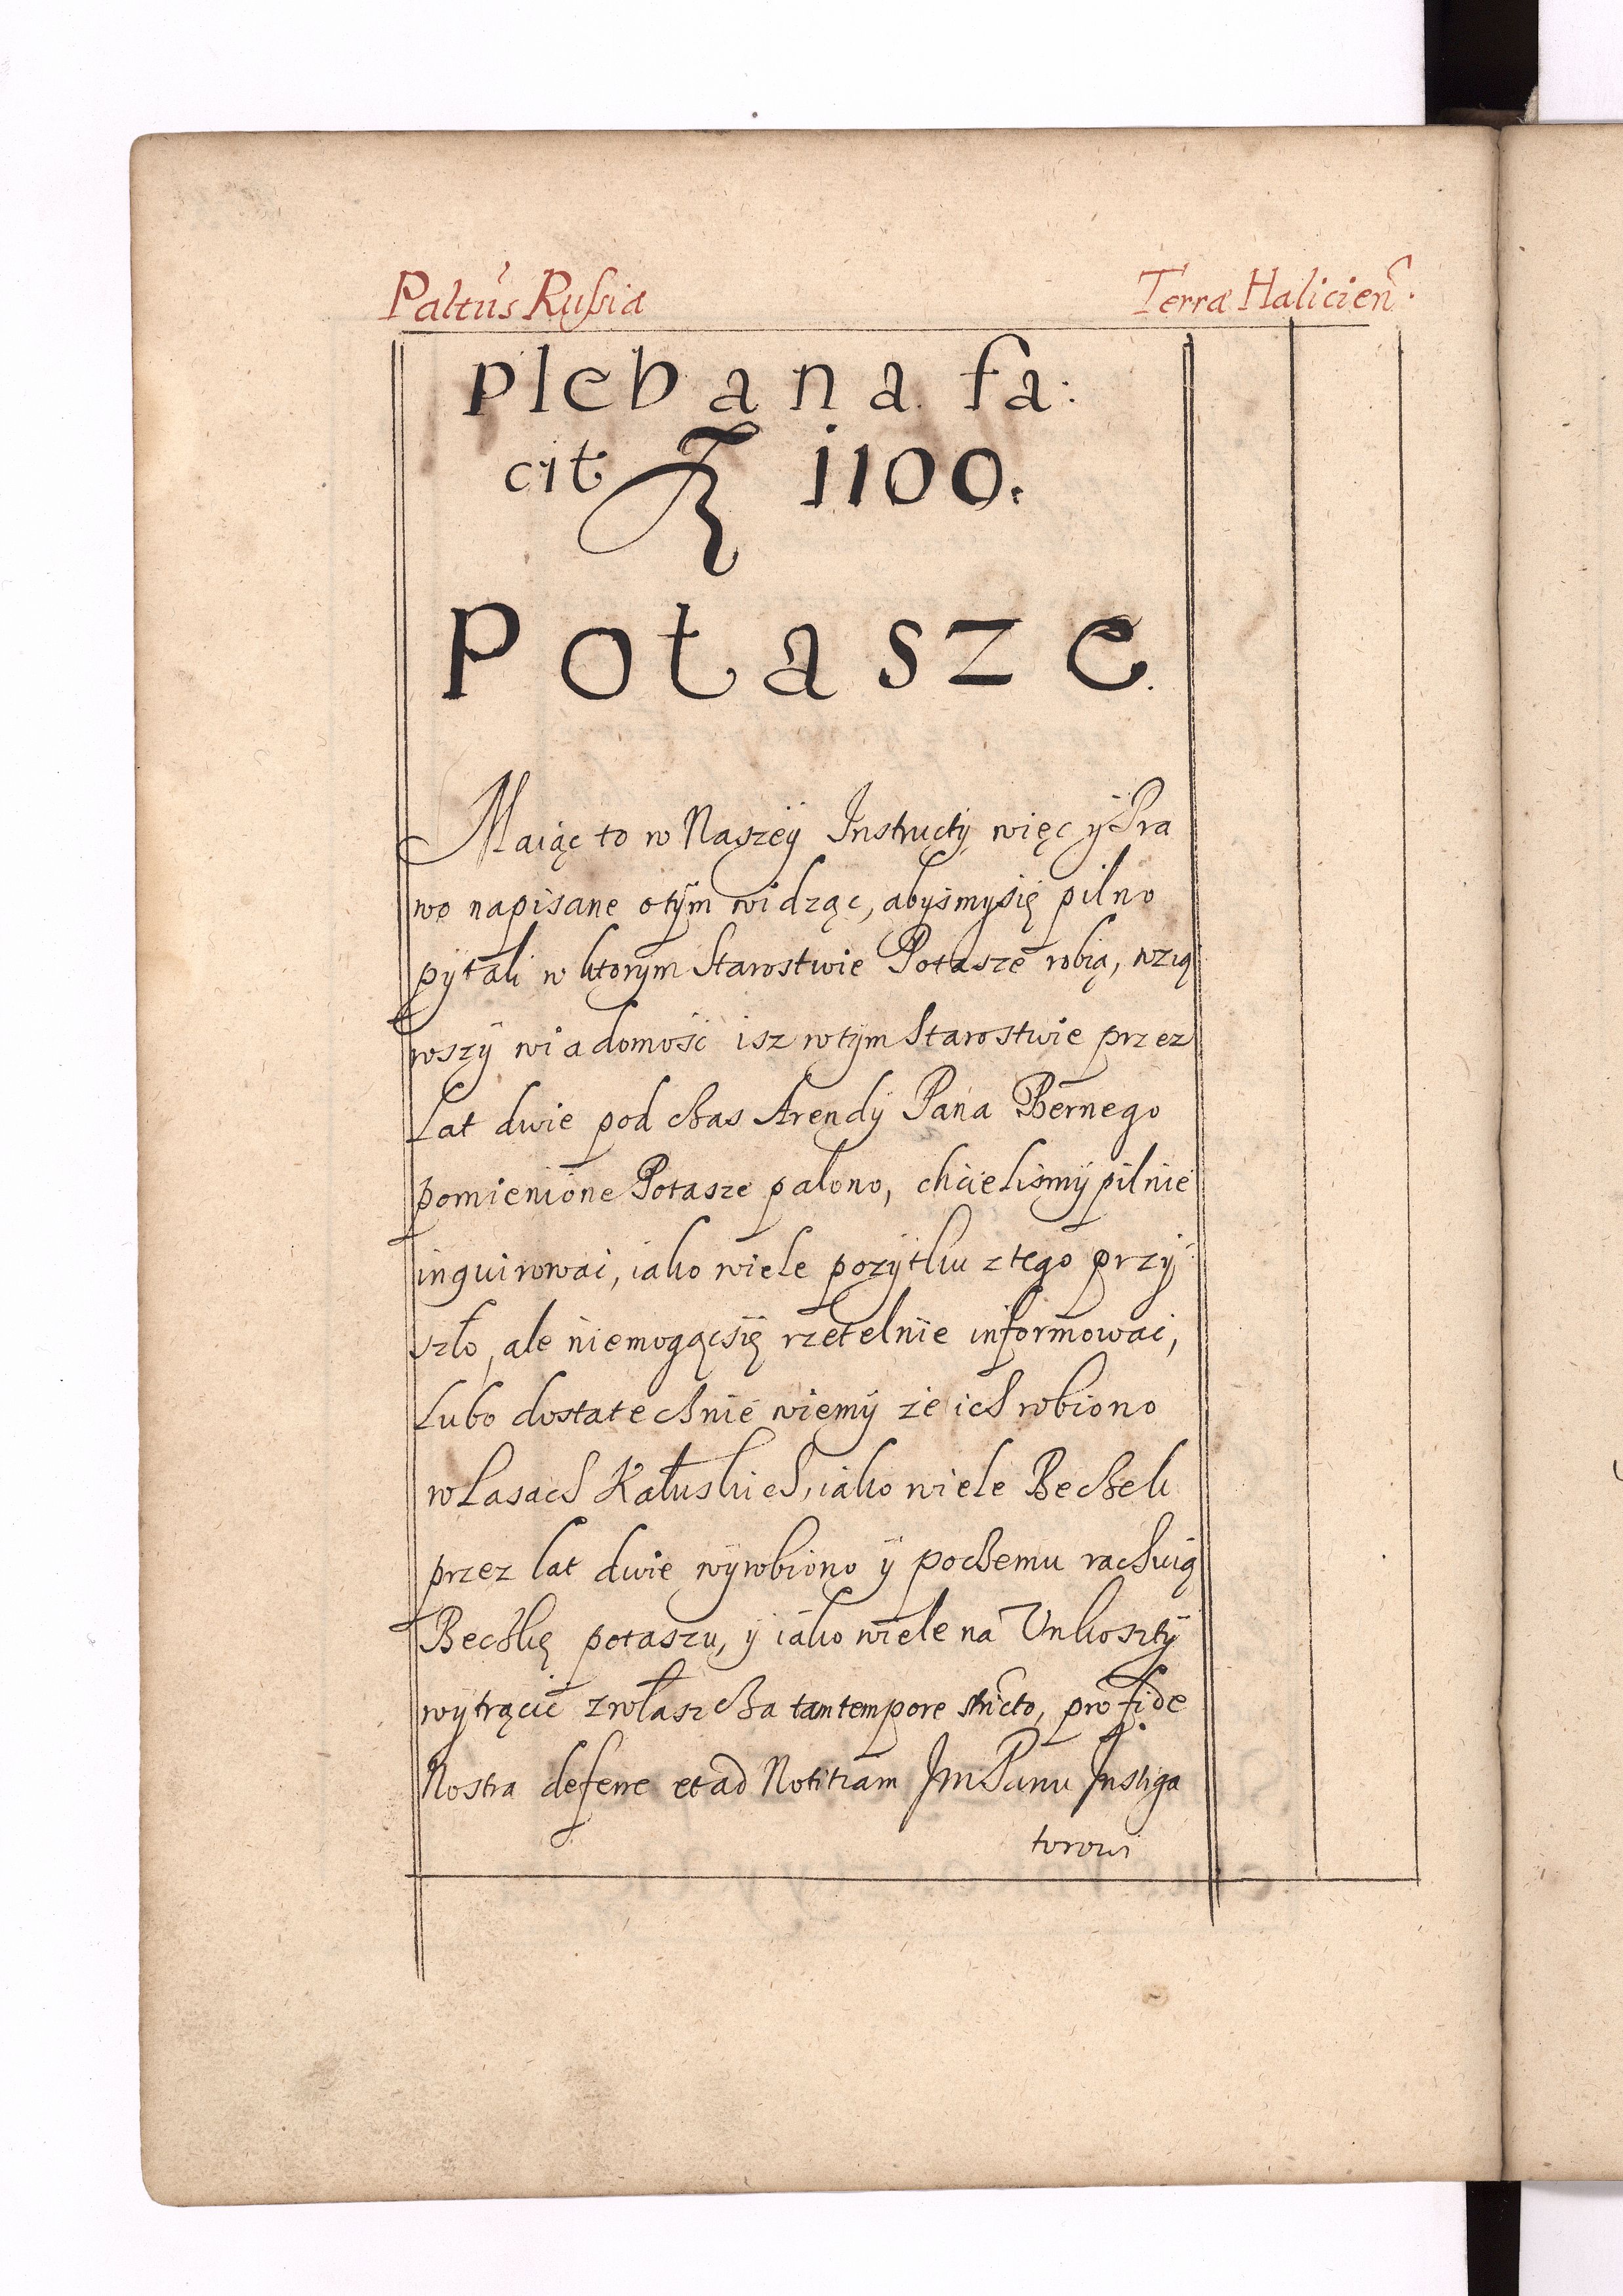 Paltũs Rußia Terræ Halicien̄.
plebana fa:
cit fl 1100.
Potasze.
Maiąc to w Naszeÿ Instructÿ więc ÿ Pra
wo napisane otÿm widząc, abyśmysię pilno
pÿtali w ktorym Starostwie Potasze robią, wzią
wszÿ wiadomość isz wtÿm Starostwie przez
Lat dwie pod czas Arendÿ Pana Bernego
pomienione Potasze palono, chcieliśmÿ pilnie
inquirowac, iako wiele pozÿtku z tego przÿ
szło, ale niemogącsię rzetelnie informowac,
Lubo dostatecznie wiemÿ że ich robiono
w Lasach Kałuskich, iako wiele Beczek
przez lat dwie wÿrobiono ÿ poczemu rachuią
Beczkę potaszu, ÿ iako wiele na Unkosztÿ
wÿtrącic zwłaszcza tam tempore stricto, pro fide
Nostra deferre et ad Notitiam Jm Panu Instiga
torowi